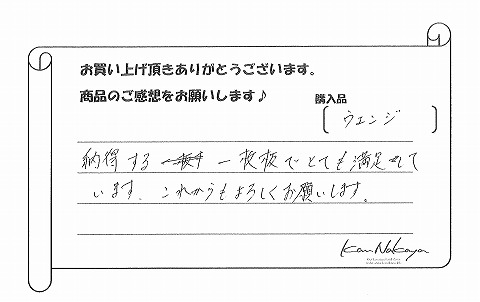 お買い上げ頂きありがとうございます。
商品のご感想をお願いします♪
購入品
ウエンジ
納得する 一枚板でとても満足して
います。これからもよろしくお願いします。
Kan Nakaya